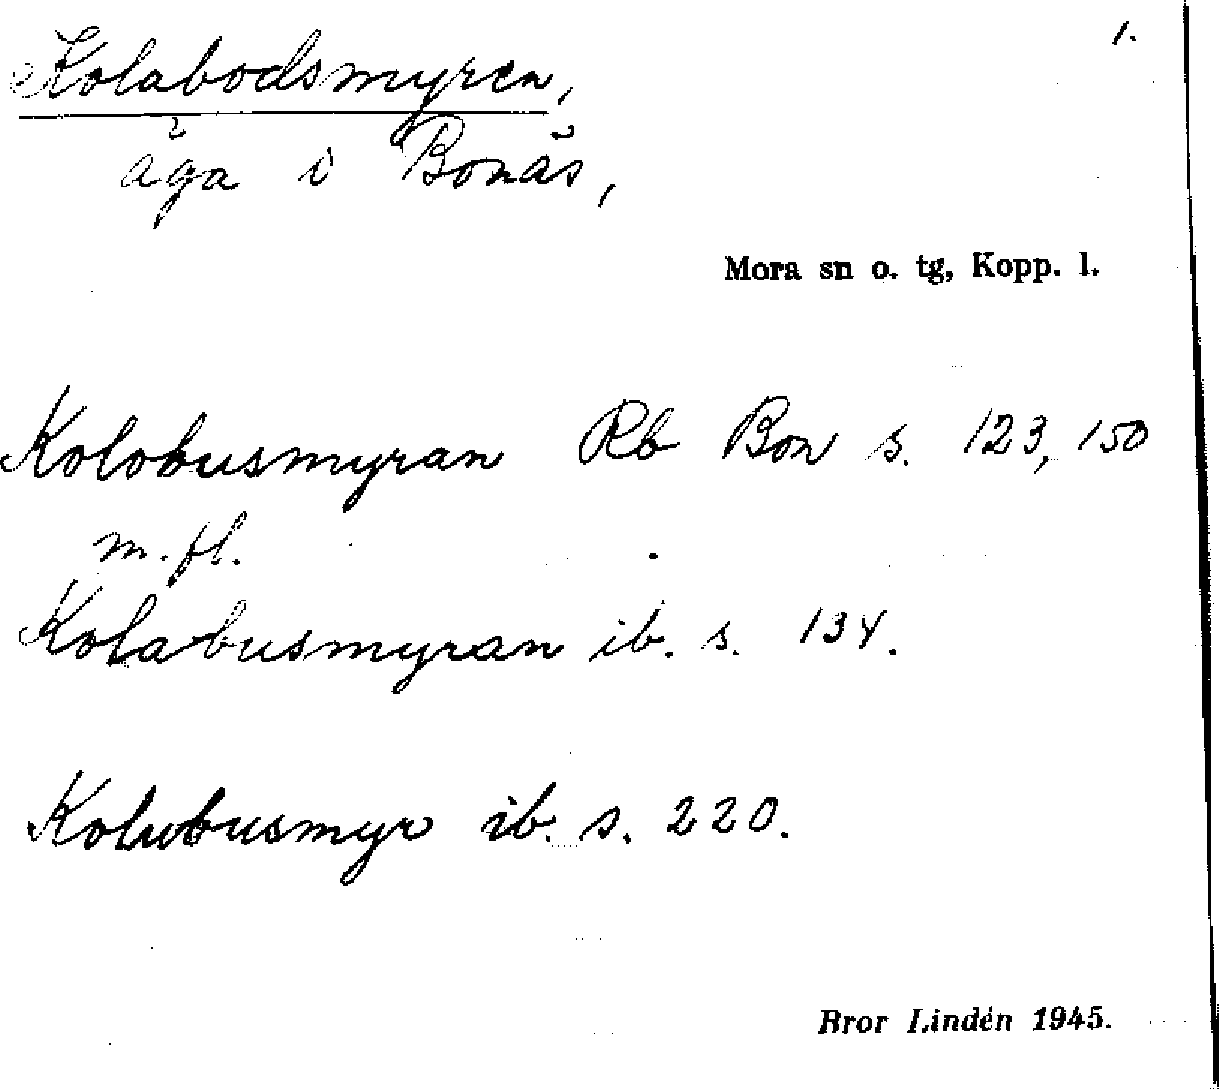 1.
Kolabodsmyren,
äga i Bonäs,
Mora sn o. tg, Kopp. l.
Kolobusmyran Rb Bon s. 123, 150
m. fl.
Kolabusmyran ib. s. 134.
Kolubusmyr ib. s. 220.
Bror Lindén 1945.